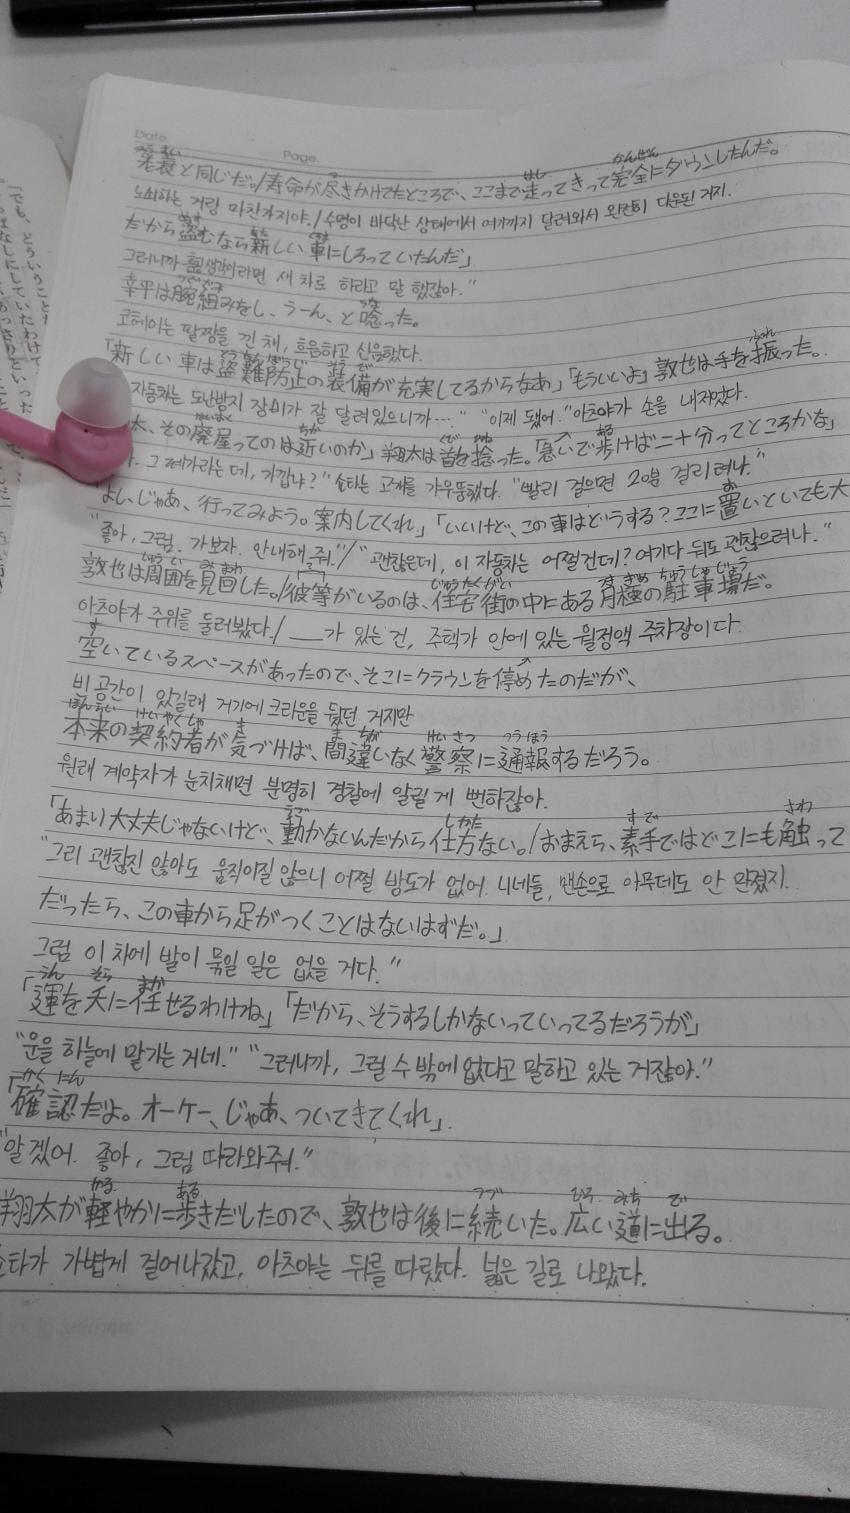 Date
Page
老衰と同じだ。/寿命が尽きかけてたところで、ここまで走ってきって完全にダウンしたんだ。
노쇠하는 거랑 마찬가지야. / 수명이 바닥난 상태에서 여기까지 달려와서 완전히 다운된 거지.
だから盗むなら新しい車にしろっていたんだ」
그러니까 훔칠 생각이라면 새 차로 하라고 말 했잖아."
幸平は腕組みをし、うーん、と唸った。
코헤이는 팔짱을 낀 채, 흐음하고 신음했다.
「新しい車は盗難防止の装備が充実してるからなあ」「もういいよ」敦也は手を振った。
자동차는 도난방지 장비가 잘 달려있으니까…." "이제 됐어." 아츠야가 손을 내저었다.
太、その廃屋ってのは近いのか」翔太は首を捻った。「急いで歩けば二十分ってところかな」
그 폐가라는 데, 가깝냐?" 쇼타는 고개를 갸우뚱했다. "빨리 걸으면 20분 걸리려나."
よし、じゃあ、行ってみよう。案内してくれ」「いいけど、この車はどうする?ここに置いといても大
"좋아, 그럼. 가보자. 안내해 줘."/" 괜찮은데, 이 자동차는 어쩔건데? 여기다 둬도 괜찮으려나."
敦也は周囲を見回した。/彼等がいるのは、住宅街の中にある月極の駐車場だ。
아츠야가 주위를 둘러봤다./ __가 있는 건, 주택가 안에 있는 월정액 주차장이다.
空いているスペースがあったので、そこにクラウンを停めたのだが、
비 공간이 있길래 거기에 크라운을 뒀던 거지만
本来の契約者が気づけば、間違いなく警察に通報するだろう。
원래 계약자가 눈치채면 분명히 경찰에 알릴 게 뻔하잖아.
「あまり大丈夫じゃないけど、動かないんだから仕方ない。/おまえら、素手ではどこにも触って
"그리 괜찮진 않아도 움직이질 않으니 어쩔 방도가 없어. 니네들, 맨손으로 아무데도 안 만졌지.
だったら、この車から足がつくことはないはずだ。」
그럼 이 차에 발이 묶일 일은 없을 거다."
「運を天に任せるわけね」「だから、そうするしかないっていってるだろうが」
"운을 하늘에 맡기는 거네." "그러니까, 그럴 수 밖에 없다고 말하고 있는 거잖아."
「確認だよ。オーケー、じゃあ、ついてきてくれ」.
"알겠어. 좋아, 그럼 따라와줘."
翔太が軽やかに歩きだしたので、敦也は後に続いた。広い道に出る。
쇼타가 가볍게 걸어나갔고, 아츠야는 뒤를 따랐다. 넓은 길로 나왔다.